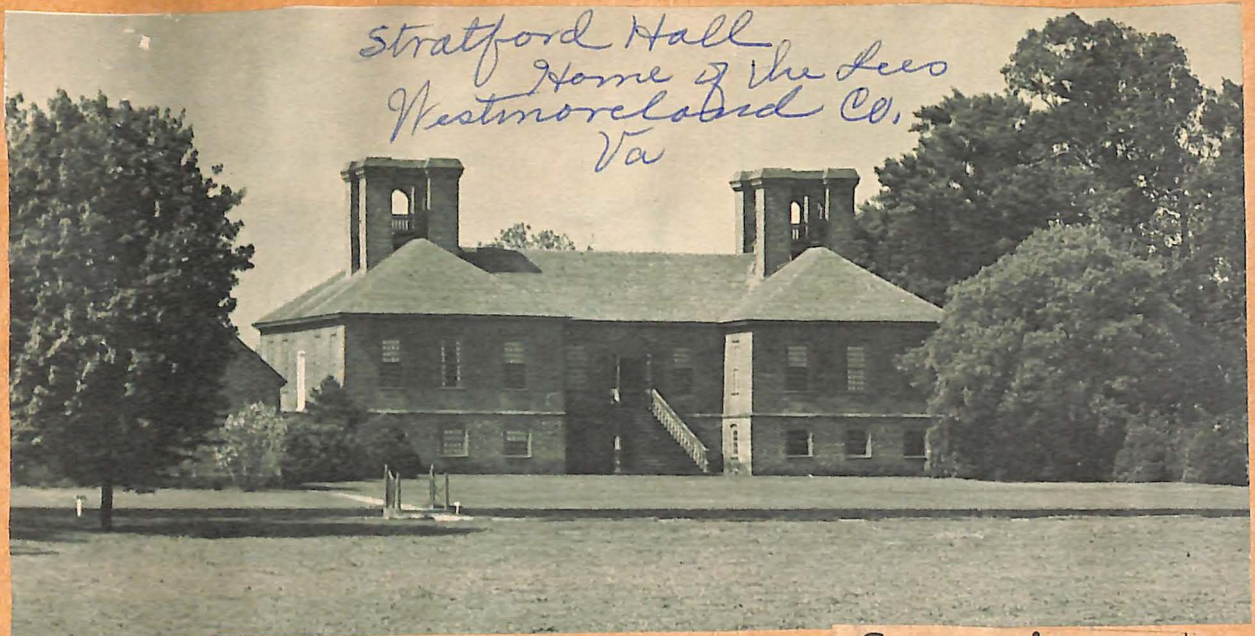 Stratford Hall
Home of the Lees
Westmoreland Co.
Va